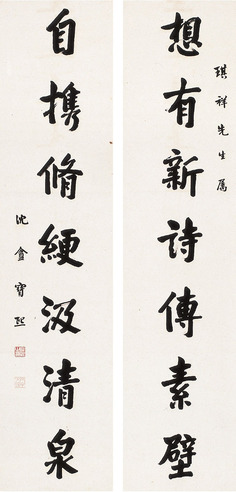 琪祥先生属
想有新詩傳素壁
自携脩綆汲清泉
沈盦寶熙